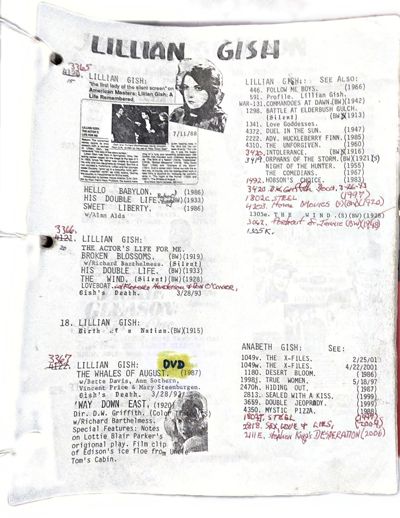 LILLIAN GISH
3365
LILLIAN GISH:
"the first lady of the silent screen" on
American Masters: Lillian Gish: A
Life Remembered.
7/11/88
HELLO BABYLON. (1986)
HIS DOUBLE LIFE. (BW)(1933)
SWEET LIBERTY. (1986)
w/Alan Alda
3366
4121. LILLIAN GISH:
THE ACTOR'S LIFE FOR ME.
BROKEN BLOSSOMS. (BW)(1919)
w/Richard Barthelmess. (Silent)
HIS DOUBLE LIFE. (BW)(1933)
THE WIND. (Silent)(BW)(1928)
LOVEBOAT. w/Florence Henderson
Gish's Death. 3/28/93
18. LILLIAN GISH:
Birth of a Nation.(BW)(1915)
3367
4122. LILLIAN GISH: DVD
THE WHALES OF AUGUST. (1987)
w/Bette Davis, Ann Sothern,
Vincent Price & Mary Steenburgen.
Gish's Death. 3/28/93
'WAY DOWN EAST. (1920)
Dir. D.W. Griffith. (Color
w/Richard Barthelmess.
Special Features: Notes
on Lottie Blair Parker's
original play. Film clip
of Edison's ice floe from Uncle
Tom's Cabin.
LILLIAN GISH: SEE ALSO:
446. FOLLOW ME BOYS. (1966)
591. Profile. Lillian Gish.
WAR-131. COMMANDOES AT DAWN.(BW)(1942)
1298. BATTLE AT ELDERBUSH GULCH.
(Silent) (BW)(1913)
1341. Love Goddesses.
4372. DUEL IN THE SUN. (1947)
2222. ADV. HUCKLEBERRY FINN. (1985)
4310. THE UNFORGIVEN. (1960)
3430. INTOLERANCE. (BW)(1916)
3419. ORPHANS OF THE STORM.(BW)(1921)(S)
NIGHT OF THE HUNTER. (1955)
THE COMEDIANS. (1967)
1992. HOBSON'S CHOICE. (1983)
3420 D.W. Griffith
1802c STEEL (1997)
Home Movies
1305a. THE WIND.(S)(BW)(1928)
1305K.
ANABETH GISH: SEE:
1049v. THE X-FILES. 2/25/01
1049w. THE X-FILES. 4/22/2001
1180. DESERT BLOOM. (1986)
1998j. TRUE WOMEN. 5/18/97
2470h. HIDING OUT. (1987)
2813. SEALED WITH A KISS. (1999)
3669. DOUBLE JEOPARDY. (1999)
4350. MYSTIC PIZZA. (1988)
1802c STEEL (1997)
2818. SEX, LOVE & LIES,
2111E. Stephen King's DESPERATION (2006)